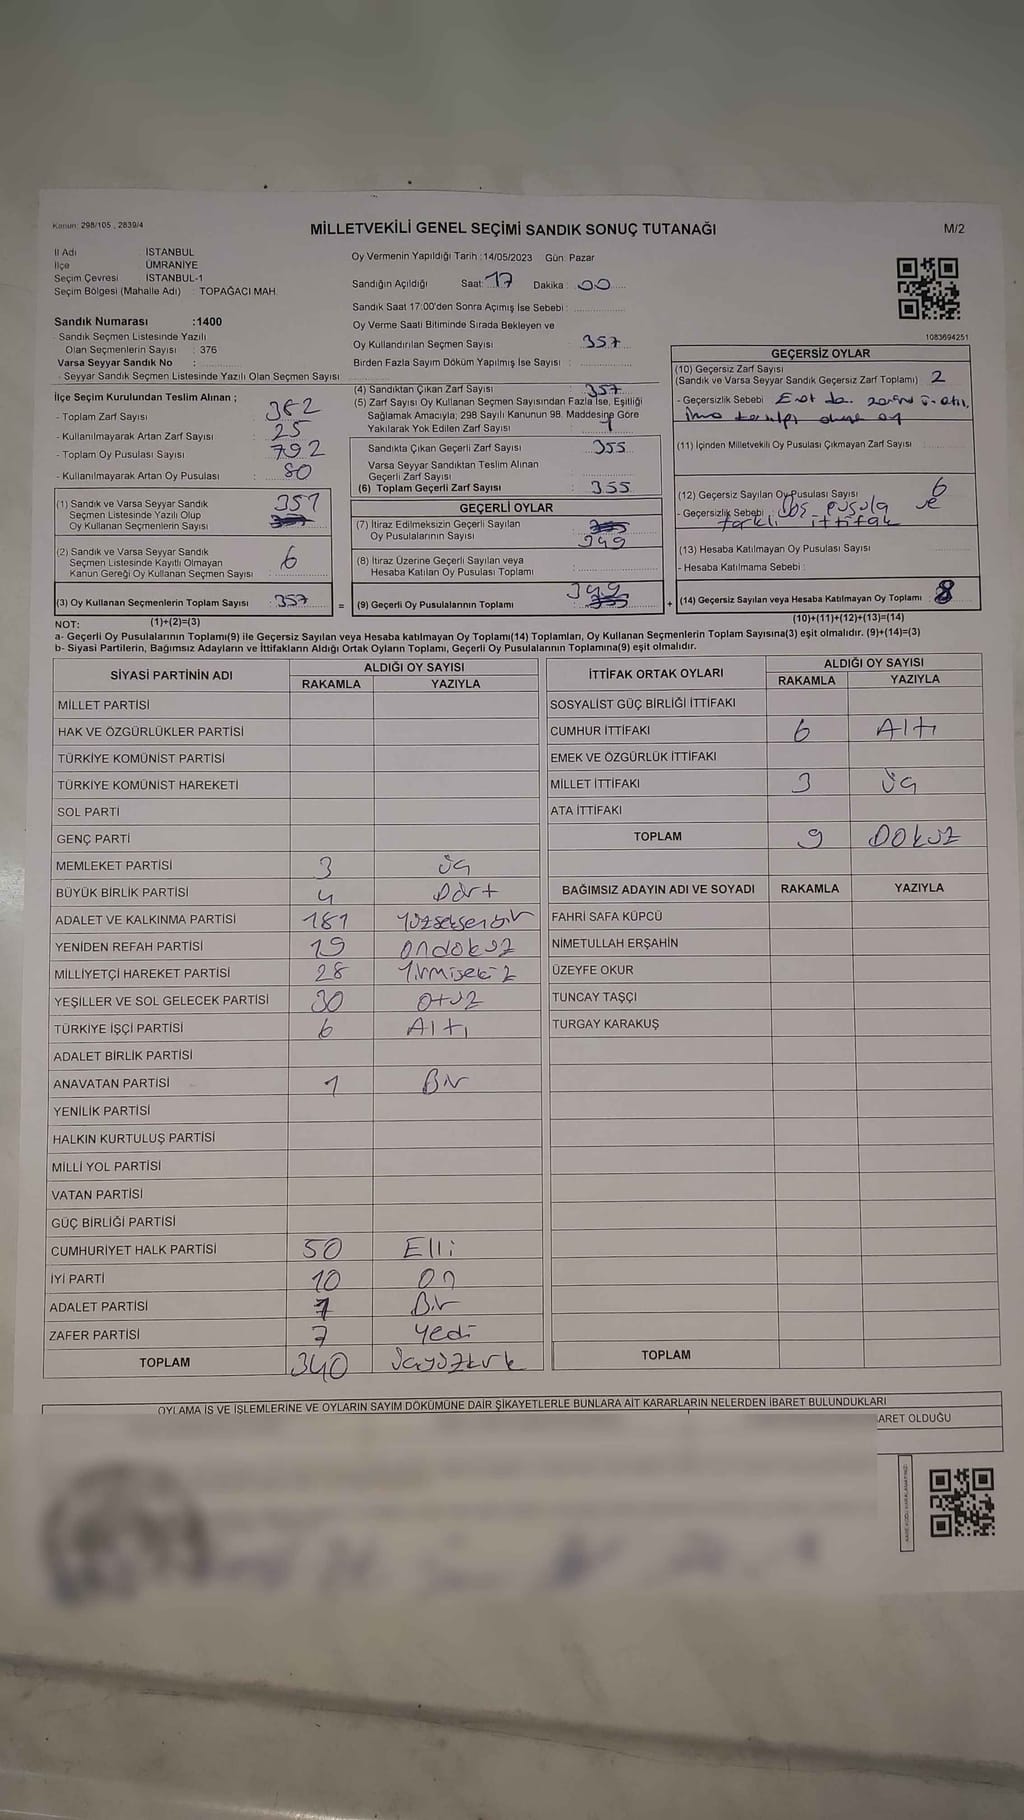 Kanun: 298/105 , 2839/4
MİLLETVEKİLİ GENEL SEÇİMİ SANDIK SONUÇ TUTANAĞI
M/2
İl Adı İSTANBUL
İlçe ÜMRANİYE
Seçim Çevresi İSTANBUL-1
Seçim Bölgesi (Mahalle Adı) : TOPAĞACI MAH.
Sandık Numarası :1400
Sandık Seçmen Listesinde Yazılı
Olan Seçmenlerin Sayısı : 376
Varsa Seyyar Sandık No :
Seyyar Sandık Seçmen Listesinde Yazılı Olan Seçmen Sayısı :
Oy Vermenin Yapıldığı Tarih :14/05/2023 Gün: Pazar
Sandığın Açıldığı Saat: 17 Dakika : 00
Sandık Saat 17:00'den Sonra Açımış İse Sebebi :
Oy Verme Saati Bitiminde Sırada Bekleyen ve
Oy Kullandırılan Seçmen Sayısı : 357
Birden Fazla Sayım Döküm Yapılmış İse Sayısı :
1083694251
İlçe Seçim Kurulundan Teslim Alınan ;
- Toplam Zarf Sayısı : 382
- Kullanılmayarak Artan Zarf Sayısı : 25
- Toplam Oy Pusulası Sayısı : 792
- Kullanılmayarak Artan Oy Pusulası : 80
(1) Sandık ve Varsa Seyyar Sandık
Seçmen Listesinde Yazılı Olup
Oy Kullanan Seçmenlerin Sayısı : 351
(2) Sandık ve Varsa Seyyar Sandık
Seçmen Listesinde Kayıtlı Olmayan
Kanun Gereği Oy Kullanan Seçmen Sayısı : 6
(3) Oy Kullanan Seçmenlerin Toplam Sayısı : 357 =
(4) Sandıktan Çıkan Zarf Sayısı : 357
(5) Zarf Sayısı Oy Kullanan Seçmen Sayısından Fazla İse, Eşitliği
Sağlamak Amacıyla; 298 Sayılı Kanunun 98. Maddesine Göre
Yakılarak Yok Edilen Zarf Sayısı :
Sandıkta Çıkan Geçerli Zarf Sayısı : 355
Varsa Seyyar Sandıktan Teslim Alınan
Geçerli Zarf Sayısı :
(6) Toplam Geçerli Zarf Sayısı : 355
GEÇERLİ OYLAR
(7) İtiraz Edilmeksizin Geçerli Sayılan
Oy Pusulalarının Sayısı : 349
(8) İtiraz Üzerine Geçerli Sayılan veya
Hesaba Katılan Oy Pusulası Toplamı :
(9) Geçerli Oy Pusulalarının Toplamı : 349 +
GEÇERSİZ OYLAR
(10) Geçersiz Zarf Sayısı
(Sandık ve Varsa Seyyar Sandık Geçersiz Zarf Toplamı) : 2
- Geçersizlik Sebebi :
(11) İçinden Milletvekili Oy Pusulası Çıkmayan Zarf Sayısı :
(12) Geçersiz Sayılan Oy Pusulası Sayısı : 6
- Geçersizlik Sebebi : boş pusula ve
farklı ittifak
(13) Hesaba Katılmayan Oy Pusulası Sayısı :
- Hesaba Katılmama Sebebi :
(14) Geçersiz Sayılan veya Hesaba Katılmayan Oy Toplamı : 8
NOT: (1)+(2)=(3)
(10)+(11)+(12)+(13)=(14)
a- Geçerli Oy Pusulalarının Toplamı(9) ile Geçersiz Sayılan veya Hesaba katılmayan Oy Toplamı(14) Toplamları, Oy Kullanan Seçmenlerin Toplam Sayısına(3) eşit olmalıdır. (9)+(14)=(3)
b- Siyasi Partilerin, Bağımsız Adayların ve İttifakların Aldığı Ortak Oyların Toplamı, Geçerli Oy Pusulalarının Toplamına(9) eşit olmalıdır.
SİYASİ PARTİNİN ADI ALDIĞI OY SAYISI
RAKAMLA YAZIYLA
MİLLET PARTİSİ
HAK VE ÖZGÜRLÜKLER PARTİSİ
TÜRKİYE KOMÜNİST PARTİSİ
TÜRKİYE KOMÜNİST HAREKETİ
SOL PARTİ
GENÇ PARTİ
MEMLEKET PARTİSİ 3 üç
BÜYÜK BİRLİK PARTİSİ 4 Dört
ADALET VE KALKINMA PARTİSİ 181 Yüzseksenbir
YENİDEN REFAH PARTİSİ 19 ondokuz
MİLLİYETÇİ HAREKET PARTİSİ 28 Yirmisekiz
YEŞİLLER VE SOL GELECEK PARTİSİ 30 otuz
TÜRKİYE İŞÇİ PARTİSİ 6 Altı
ADALET BİRLİK PARTİSİ
ANAVATAN PARTİSİ 1 Bir
YENİLİK PARTİSİ
HALKIN KURTULUŞ PARTİSİ
MİLLİ YOL PARTİSİ
VATAN PARTİSİ
GÜÇ BİRLİĞİ PARTİSİ
CUMHURİYET HALK PARTİSİ 50 Elli
İYİ PARTİ 10 On
ADALET PARTİSİ 1 Bir
ZAFER PARTİSİ 7 Yedi
TOPLAM 340 üçyüzkırk
İTTİFAK ORTAK OYLARI ALDIĞI OY SAYISI
RAKAMLA YAZIYLA
SOSYALİST GÜÇ BİRLİĞİ İTTİFAKI
CUMHUR İTTİFAKI 6 Altı
EMEK VE ÖZGÜRLÜK İTTİFAKI
MİLLET İTTİFAKI 3 üç
ATA İTTİFAKI
TOPLAM 9 Dokuz
BAĞIMSIZ ADAYIN ADI VE SOYADI RAKAMLA YAZIYLA
FAHRİ SAFA KÜPCÜ
NİMETULLAH ERŞAHİN
ÜZEYFE OKUR
TUNCAY TAŞÇI
TURGAY KARAKUŞ
TOPLAM
OYLAMA İŞ VE İŞLEMLERİNE VE OYLARIN SAYIM DÖKÜMÜNE DAİR ŞİKAYETLERLE BUNLARA AİT KARARLARIN NELERDEN İBARET BULUNDUKLARI
ARET OLDUĞU